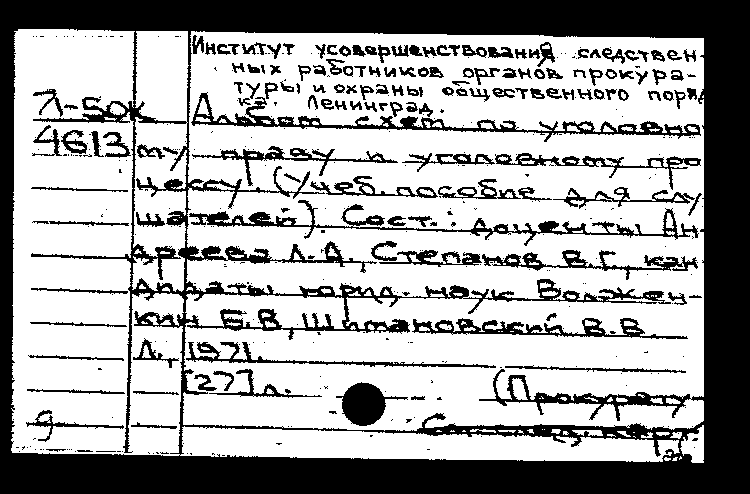 Институт усовершенствования следствен-
ных работников органов прокура-
туры и охраны общественного поряд
ка. Ленинград.
Л-50К
4613
Альбом схем по уголовно
му праву и уголовному про
цессу. (Учеб. пособие для слу
шателей). Сост.: доценты Ан-
дреева Л.А., Степанов В.Г., кан-
дидаты юрид. наук Волжен-
кин Б.В, Шимановский В.В.
Л., 1971.
[27] л.
(Прокурату
См. след. карт.